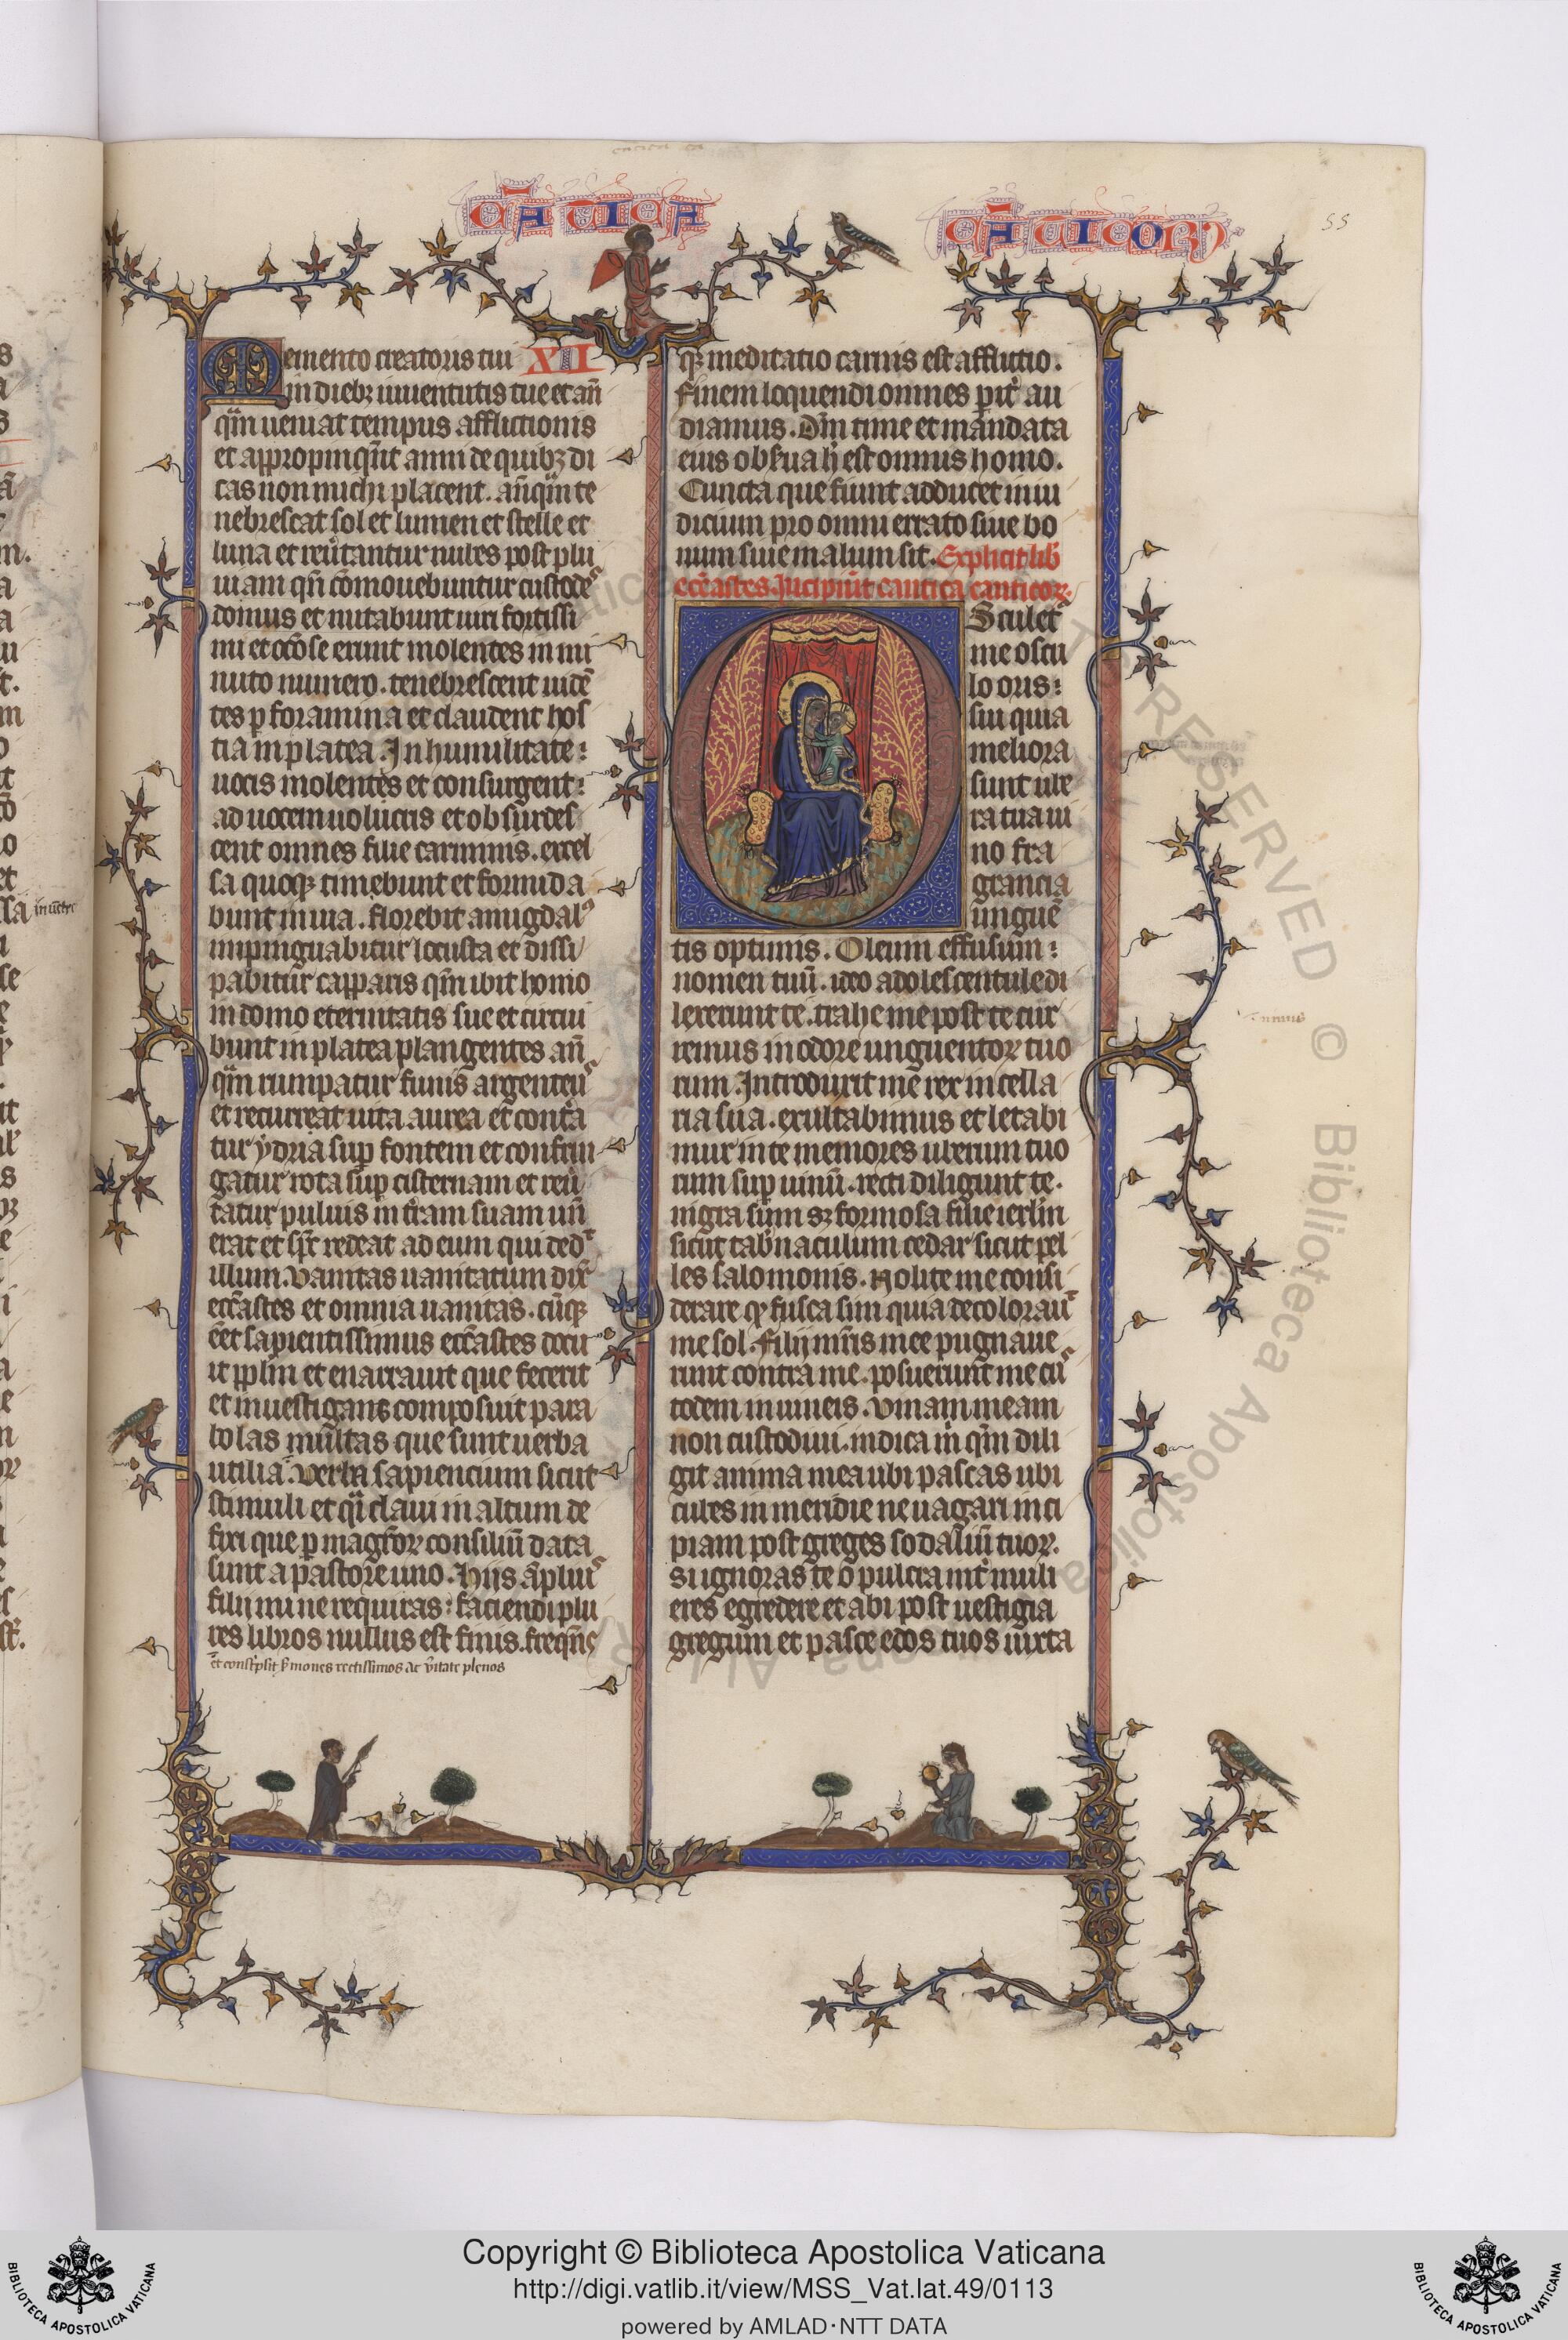 CᷓATICA
CᷓATICOꝜ
55
Memento creatoris tui XII
in diebꝫ iuuentutis tue et an̄
q̄m ueniat tempus afflictionis
et appropinq̄nt anni de quibꝫ di
cas non michi placent. an̄q̄m te
nebrescat sol et lumen et stelle et
luna et reūtantur nubes post plu
uiam qn̄ cōmouebuntur custodeˢ
domus et nutabunt uiri fortissi
mi et ocōse erunt molentes in mi
nuto numero. tenebrescent uidē
tes ꝑ foramina et claudent hos
tia in platea. In humilitate
uocis molentes et consurgent
ad uocem uolucris et obsurdes
cent omnes filie carminis. excel
sa quoqꝫ timebunt et formida
bunt in uia. florebit amigdalꝰ
impinguabitur locusta et dissi
pabitur capparis qm̄ ibit homo
in domo eternitatis sue et circui
bunt in platea plangentes an̄
q̄m rumpatur funis argenteuˢ
et recurreat uita aurea et contͣa
tur ydria suꝑ fontem et confrin
gatur rota suꝑ cisternam et reu᷑
tatur puluis in t᷑ram suam un̄
erat et sp̄c redeat ad eum qui dedᵗ
illum. Vanitas uanitatum dix̄
ecc̄astes et omnia uanitas. cūqꝫ
eēt sapientissimus ecc̄astes docu
it ppl̄m et enarrauit que fecerit
et inuestigans composuit para
bolas multas que sunt uerba
utilia. Verba sapiencium sicut
stimuli et qͣi claui in altum de
fixi que ꝑ magr̄oꝝ consiliū data
sunt a pastore uno. Hijs āpliuˢ
filij mi ne requiras: faciendi plu
res libros nullus est finis. freqn̄ˢ
et const͛psit s͛mones rectissimos ac u͛itate plenos
qꝫ meditatio carnis est afflictio.
Finem loquendi omnes pit͛ au
diamus. Dm̄ time et mandata
eius obs͛ua h̄ est omnis homo.
Cuncta que fiunt adducet in iu
dicium pro omni errato siue bo
num siue malum sit. Explicit lib͛
ecc̄astes. Incipiūt cantica canticoꝝ.
Osculetᷣ
me oscu
lo oris
sui quia
meliora
sunt ube
ra tua ui
no fra
grancia
unguē
tis optimis. Oleum effusum
nomen tuū. ideo adolescentule di
lexerunt te. trahe me post te cur
remus in odore unguentoꝝ tuo
rum. Introduxit me rex in cella
ria sua. exultabimus et letabi
mur in te memores uberum tuo
rum suꝑ uinū. recti diligunt te.
nigra sum sꝫ formosa filie ierl̄m
sicut tab͛naculum cedar sicut pel
les salomonis. Nolite me consi
derare qꝫ fusca sim quia decolorauᵗ
me sol. Filij mr̄is mee pugnaue
runt contra me. posuerunt me cuˢ
todem in uineis. Vinam meam
non custodiui. indica m̄ qm̄ dili
git anima mea ubi pascas ubi
cubes in meridie ne uagari inci
piam post greges sodaliū tuoꝝ.
Si ignoras te o pulcra int͛ muli
eres egredere et abi post uestigia
gregum et pasce edos tuos iuxta
Copyright © Biblioteca Apostolica Vaticana
http://digi.vatlib.it/view/MSS_Vat.lat.49/0113
powered by AMLAD·NTT DATA
BIBLIOTECA APOSTOLICA VATICANA
BIBLIOTECA APOSTOLICA VATICANA